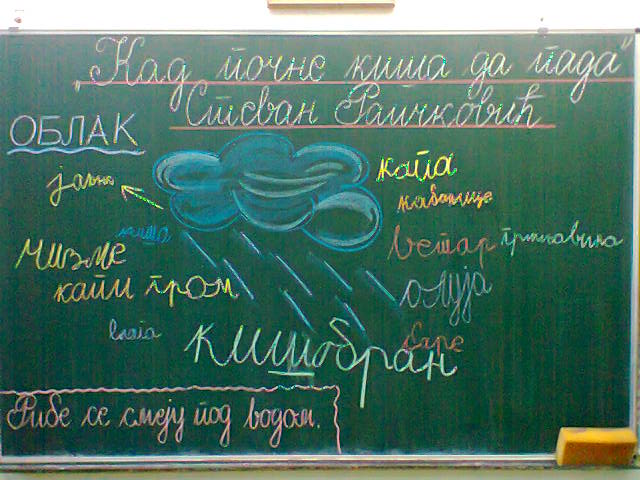 "Кад почне киша да пада"
Стеван Раичковић
ОБЛАК
капа
кабанице
киша
ветар
грмљавина
чизме
капи
гром
олуја
влага
кишобран
баре
Рибе се смеју под водом.